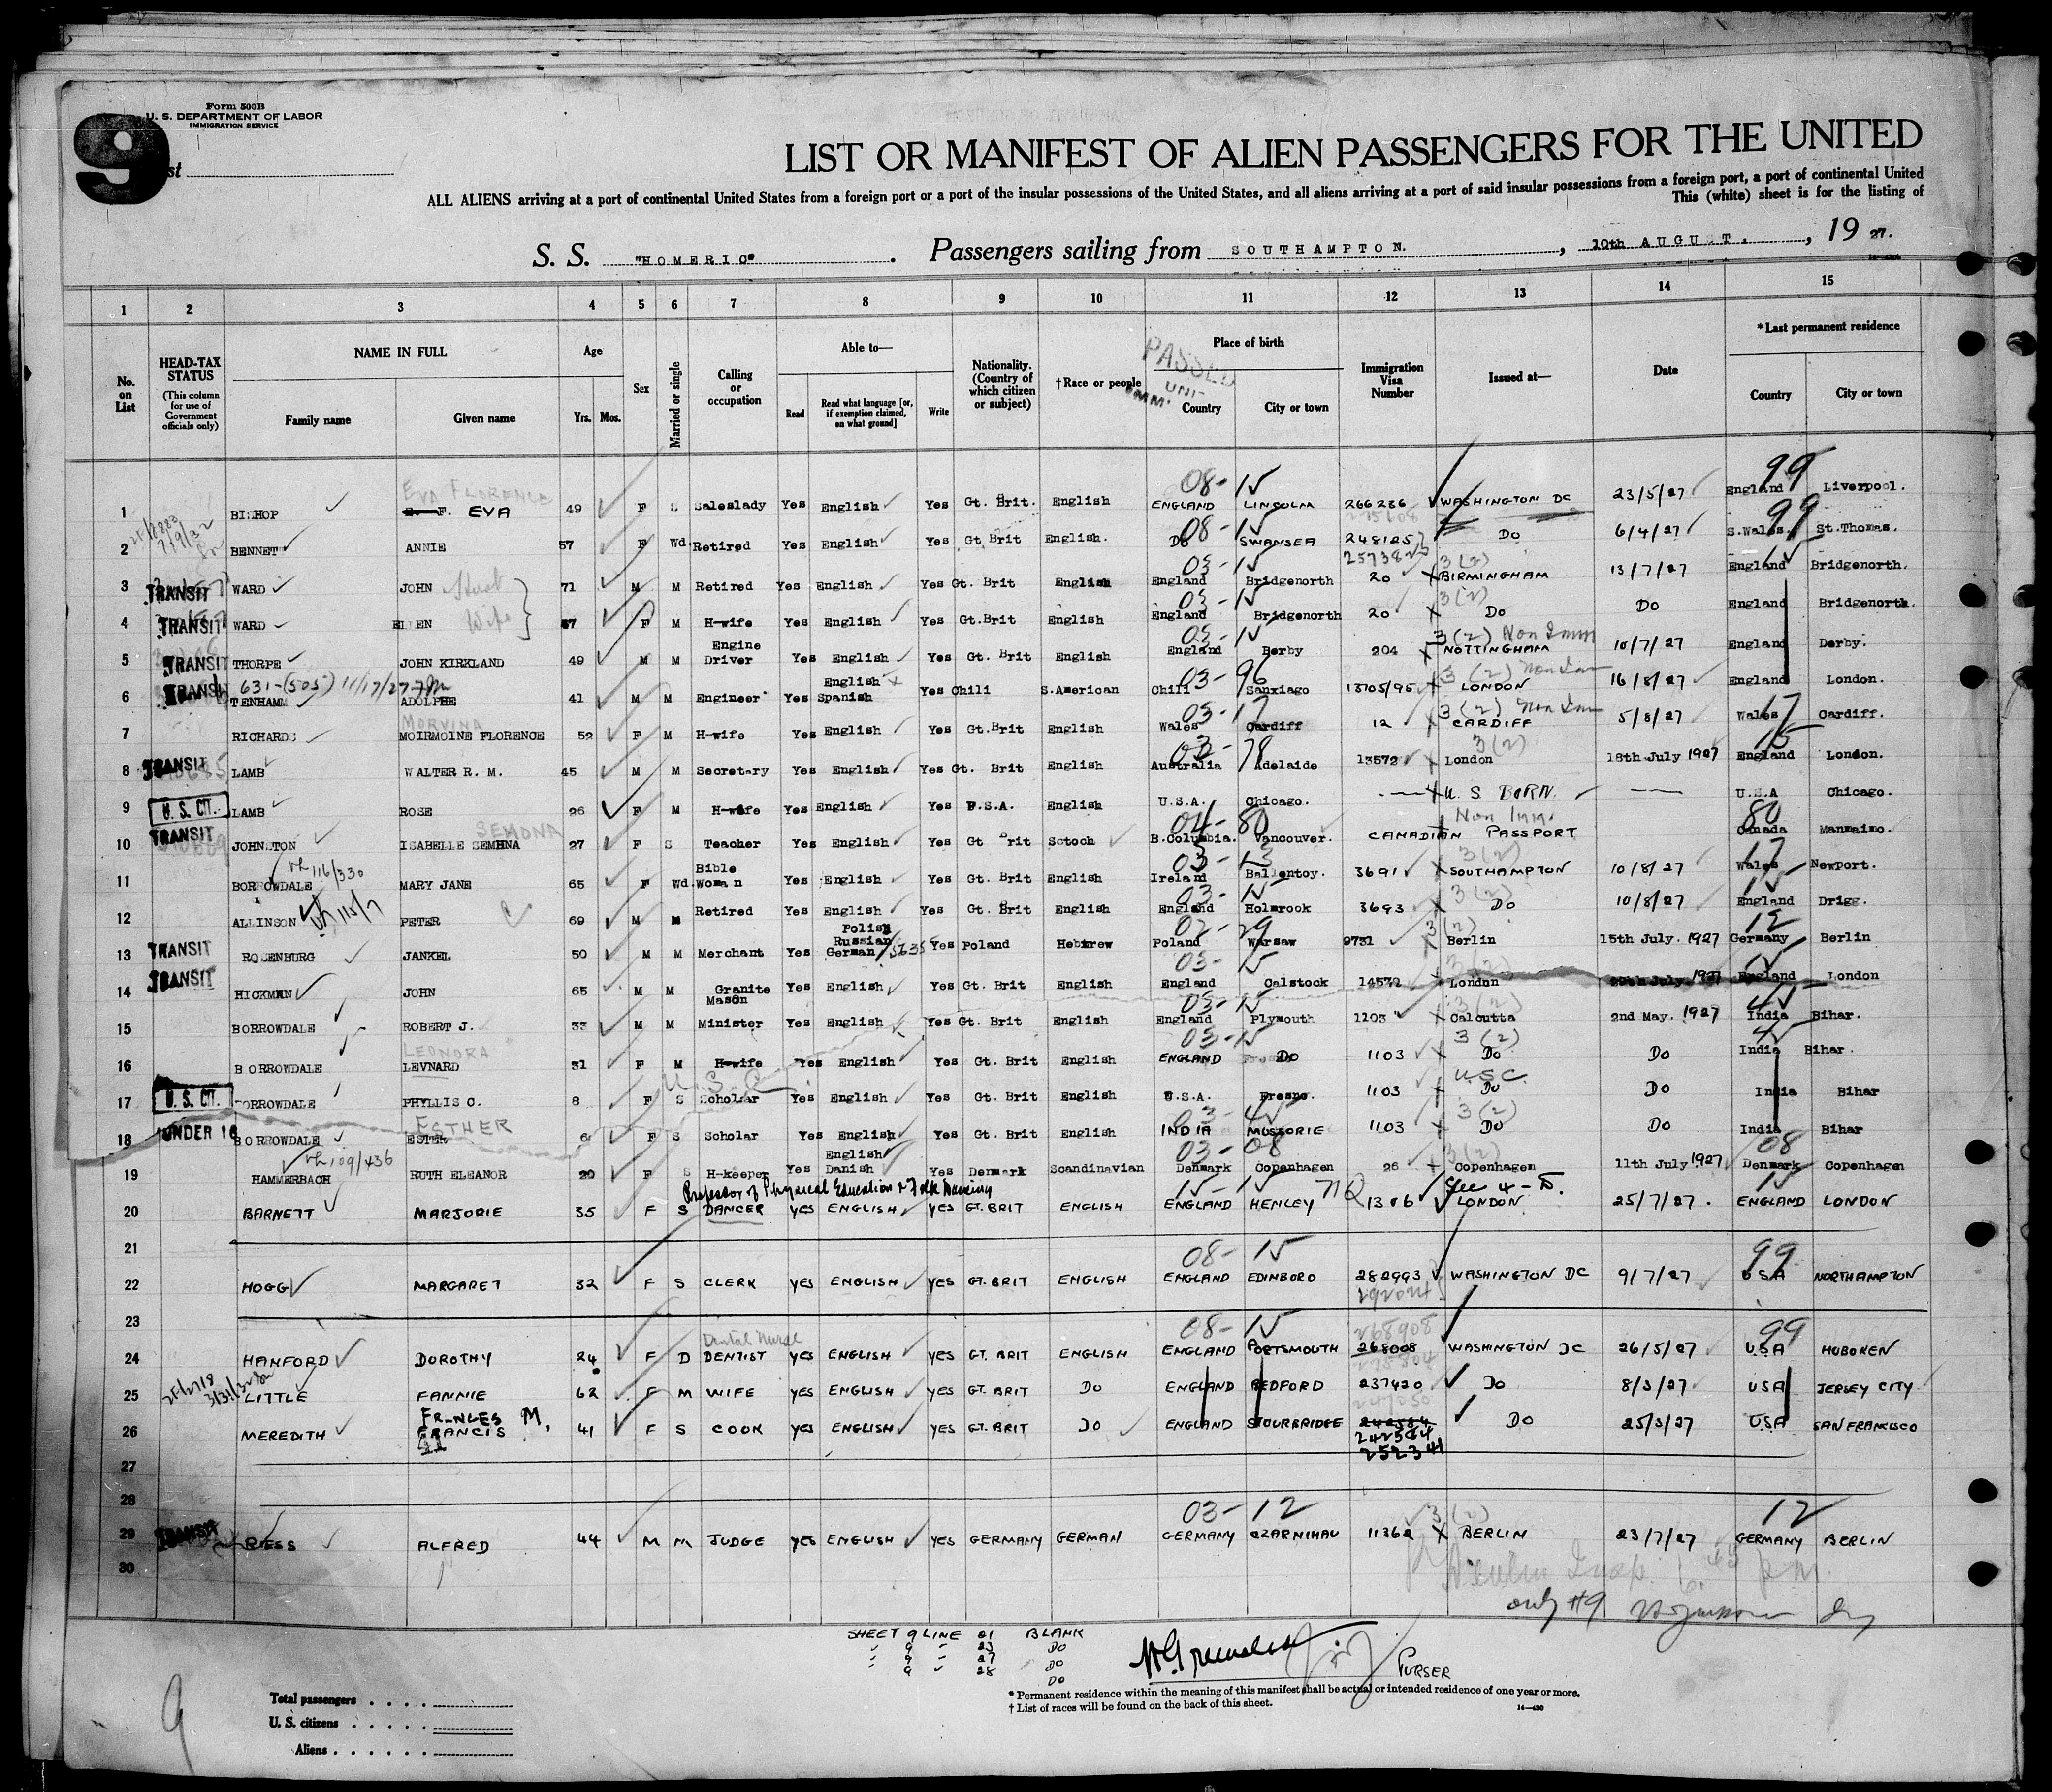 9
Form 500B
U. S. DEPARTMENT OF LABOR
IMMIGRATION SERVICE
st
LIST OR MANIFEST OF ALIEN PASSENGERS FOR THE UNITED
ALL ALIENS arriving at a port of continental United States from a foreign port or a port of the insular possessions of the United States, and all aliens arriving at a port of said insular possessions from a foreign port, a port of continental United
This (white) sheet is for the listing of
S. S. "HOMERIC" . Passengers sailing from SOUTHAMPTON. , 10th AUGUST. , 19 27.
1 2 3 4 5 6 7 8 9 10 11 12 13 14 15
No. on List
HEAD-TAX STATUS (This column for use of Government officials only)
NAME IN FULL Family name Given name
Age Yrs. Mos.
Sex
Married or single
Calling or occupation
Able to— Read Read what language [or, if exemption claimed, on what ground] Write
Nationality. (Country of which citizen or subject)
†Race or people
Place of birth Country City or town
PASSED
Immigration Visa Number
Issued at—
Date
*Last permanent residence Country City or town
EVA FLORENCE 08- 15 99
1 BISHOP F. EVA 49 F S Saleslady Yes English Yes Gt. Brit. English ENGLAND LINCOLN 266236 WASHINGTON DC 23/5/27 England Liverpool.
08 15 99
2 BENNET ANNIE 57 F Wd Retired Yes English Yes Gt. Brit English. Do SWANSEA 248125 Do 6/4/27 S.Wales St.Thomas.
03-15 3(2) 15
3 TRANSIT WARD JOHN 71 M M Retired Yes English Yes Gt. Brit English England Bridgenorth 20 X BIRMINGHAM 13/7/27 England Bridgenorth.
03-15 3(2)
4 TRANSIT WARD ELLEN Wife F M H-wife Yes English Yes Gt.Brit English England Bridgenorth 20 X Do Do England Bridgenorth.
03-15 3(2) Non Imm
5 TRANSIT THORPE JOHN KIRKLAND 49 M M Engine Driver Yes English Yes Gt. Brit English England Derby 204 X NOTTINGHAM 10/7/27 England Derby.
631-(505) 11/17/27 03-96 3(2) Non Im
6 TRANSIT TENHAMM ADOLPHE 41 M M Engineer Yes English Spanish Yes Chili S.American Chili Sanxiago 13705/95 X LONDON 16/8/27 England London.
MORVINA 03-17 3(2) Non Im 17
7 RICHARDS MOIRMOINE FLORENCE 52 F M H-wife Yes English Yes Gt.Brit English Wales Cardiff 12 X CARDIFF 5/8/27 Wales Cardiff.
03-78 3(2) 15
8 TRANSIT LAMB WALTER R. M. 45 M M Secretary Yes English Yes Gt. Brit English Australia Adelaide 13572 X London 18th July 1927 England London.
9 U. S. CIT. LAMB ROSE 26 F M H-wife Yes English Yes U.S.A. English U.S.A. Chicago. U. S BORN. U.S.A Chicago.
SEMONA 04-80 Non Imm. 80
10 TRANSIT JOHNSTON ISABELLE SEMHNA 27 F S Teacher Yes English Yes Gt Brit Scotch B.Columbia. Vancouver. CANADIAN PASSPORT Canada Manmaimo.
116/330 03-13 3(2) 17
11 BORROWDALE MARY JANE 65 F Wd Bible Woman Yes English Yes Gt. Brit English Ireland Ballentoy. 3691 X SOUTHAMPTON 10/8/27 Wales Newport.
03-15 3(2) 15
12 ALLINSON PETER 69 M M Retired Yes English Yes Gt. Brit English England Holmrook 3693 X Do 10/8/27 England Drigg.
02-29 3(2) 12
13 TRANSIT ROSENBURG JANKEL 50 M M Merchant Yes Polish Russian German Yes Poland Hebrew Poland Warsaw 9731 X Berlin 15th July. 1927 Germany Berlin
03-15 3(2) 15
14 TRANSIT HICKMAN JOHN 65 M M Granite Mason Yes English Yes Gt. Brit English England Calstock 14572 London 20th July. 1927 England London
03-15 3(2) 45
15 BORROWDALE ROBERT J. 33 M M Minister Yes English Yes Gt. Brit English England Plymouth 1103 X Calcutta 2nd May. 1927 India Bihar.
LEONORA 03-15 3(2) 45
16 BORROWDALE LEVNARD 31 F M H-wife Yes English Yes Gt. Brit English ENGLAND Do 1103 X Do Do India Bihar.
U.S.C. USC
17 U. S. CIT. BORROWDALE PHYLLIS C. 8 F S Scholar Yes English Yes Gt. Brit English U.S.A. Fresno. 1103 X Do Do India Bihar
ESTHER 03-45 3(2)
18 UNDER 16 BORROWDALE ESTER 6 F S Scholar Yes English Yes Gt. Brit English INDIA MUSSORIE 1103 X Do Do India Bihar
109/436 03-08 3(2) 08
19 HAMMERBACH RUTH ELEANOR 20 F S H-keeper Yes English Danish Yes Denmark Scandinavian Denmark Copenhagen 26 X Copenhagen 11th July 1927 Denmark Copenhagen
Professor of Physical Education & Folk Dancing 15-15 NQ Sec 4-D. 15
20 BARNETT MARJORIE 35 F S DANCER YES ENGLISH YES GT. BRIT ENGLISH ENGLAND HENLEY 1306 LONDON 25/7/27. ENGLAND LONDON
21
08-15 99
22 HOGG MARGARET 32 F S CLERK YES ENGLISH YES GT. BRIT ENGLISH ENGLAND EDINBORO 282993 WASHINGTON DC 9/7/27 USA NORTHAMPTON
23
Dental Nurse 08-15 268908 99
24 HANFORD DOROTHY 24 F D DENTIST YES ENGLISH YES GT. BRIT ENGLISH ENGLAND PORTSMOUTH 268008 WASHINGTON DC 26/5/27 USA HOBOKEN
25 LITTLE FANNIE 62 F M WIFE YES ENGLISH YES GT. BRIT DO ENGLAND BEDFORD 237420 DO 8/3/27 USA JERSEY CITY
FRANCES M.
26 MEREDITH FRANCIS 41 F S COOK YES ENGLISH YES GT. BRIT DO ENGLAND STOURBRIDGE 242584 DO 25/3/27 USA SAN FRANCISCO
242584
252341
27
28
03-12 3(2) 12
29 TRANSIT RIESS ALFRED 44 M M JUDGE YES ENGLISH YES GERMANY GERMAN GERMANY CZARNIKAU 11362 X BERLIN 23/7/27 GERMANY BERLIN
30
only #9
SHEET 9 LINE 21 BLANK
" 9 " 23 DO
" 9 " 27 DO
" 9 " 28 DO
PURSER
9
Total passengers
U. S. citizens
Aliens
* Permanent residence within the meaning of this manifest shall be actual or intended residence of one year or more.
† List of races will be found on the back of this sheet.
14—430